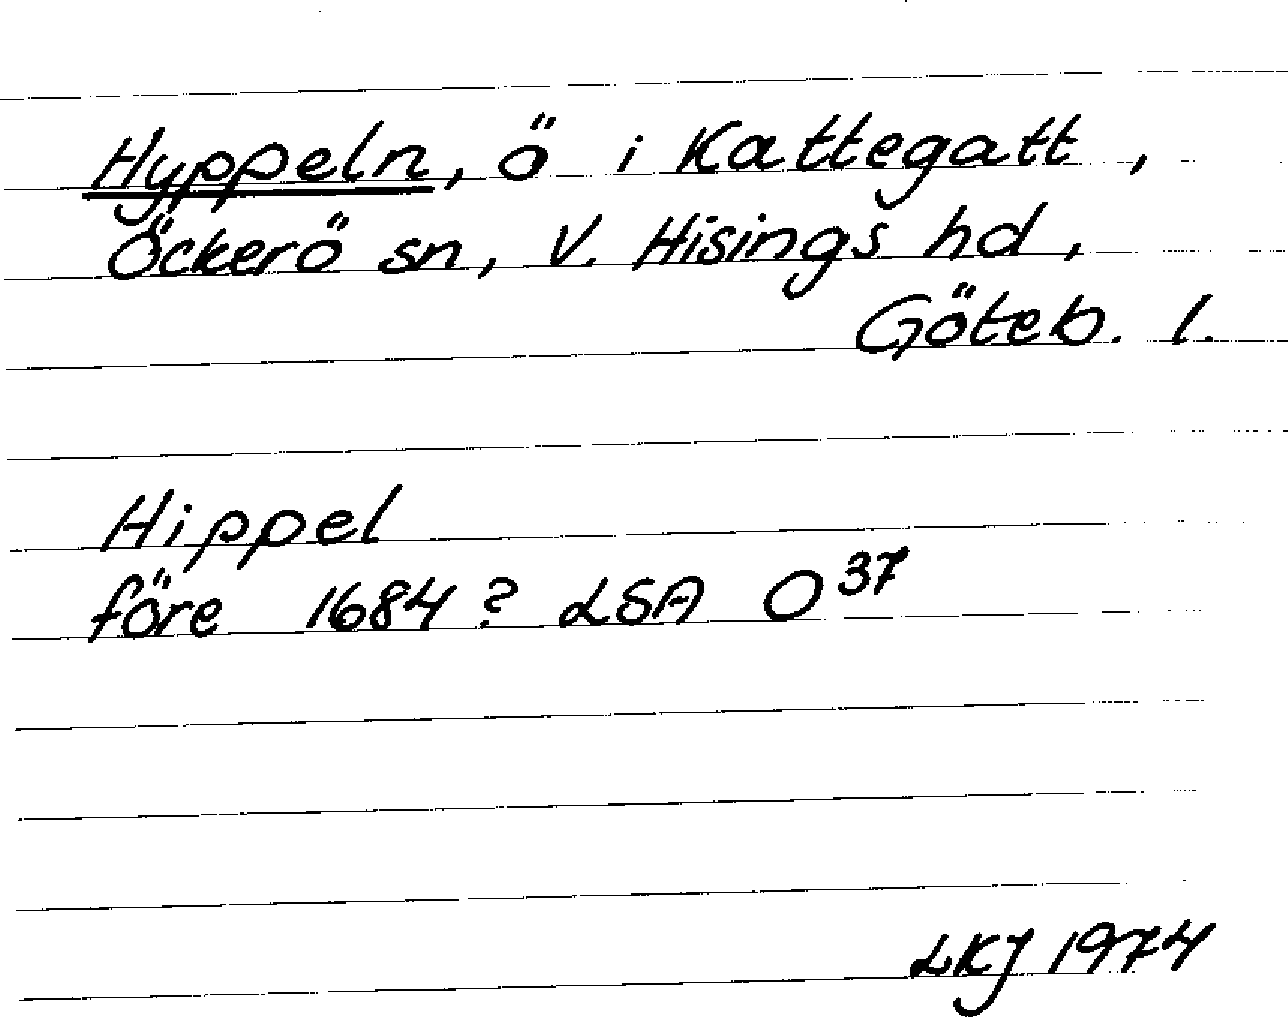 Hyppeln, ö i Kattegatt,
Öckerö sn, V. Hisings hd,
Göteb. l.
Hippel
före 1684? LSA O 37
LKJ 1974